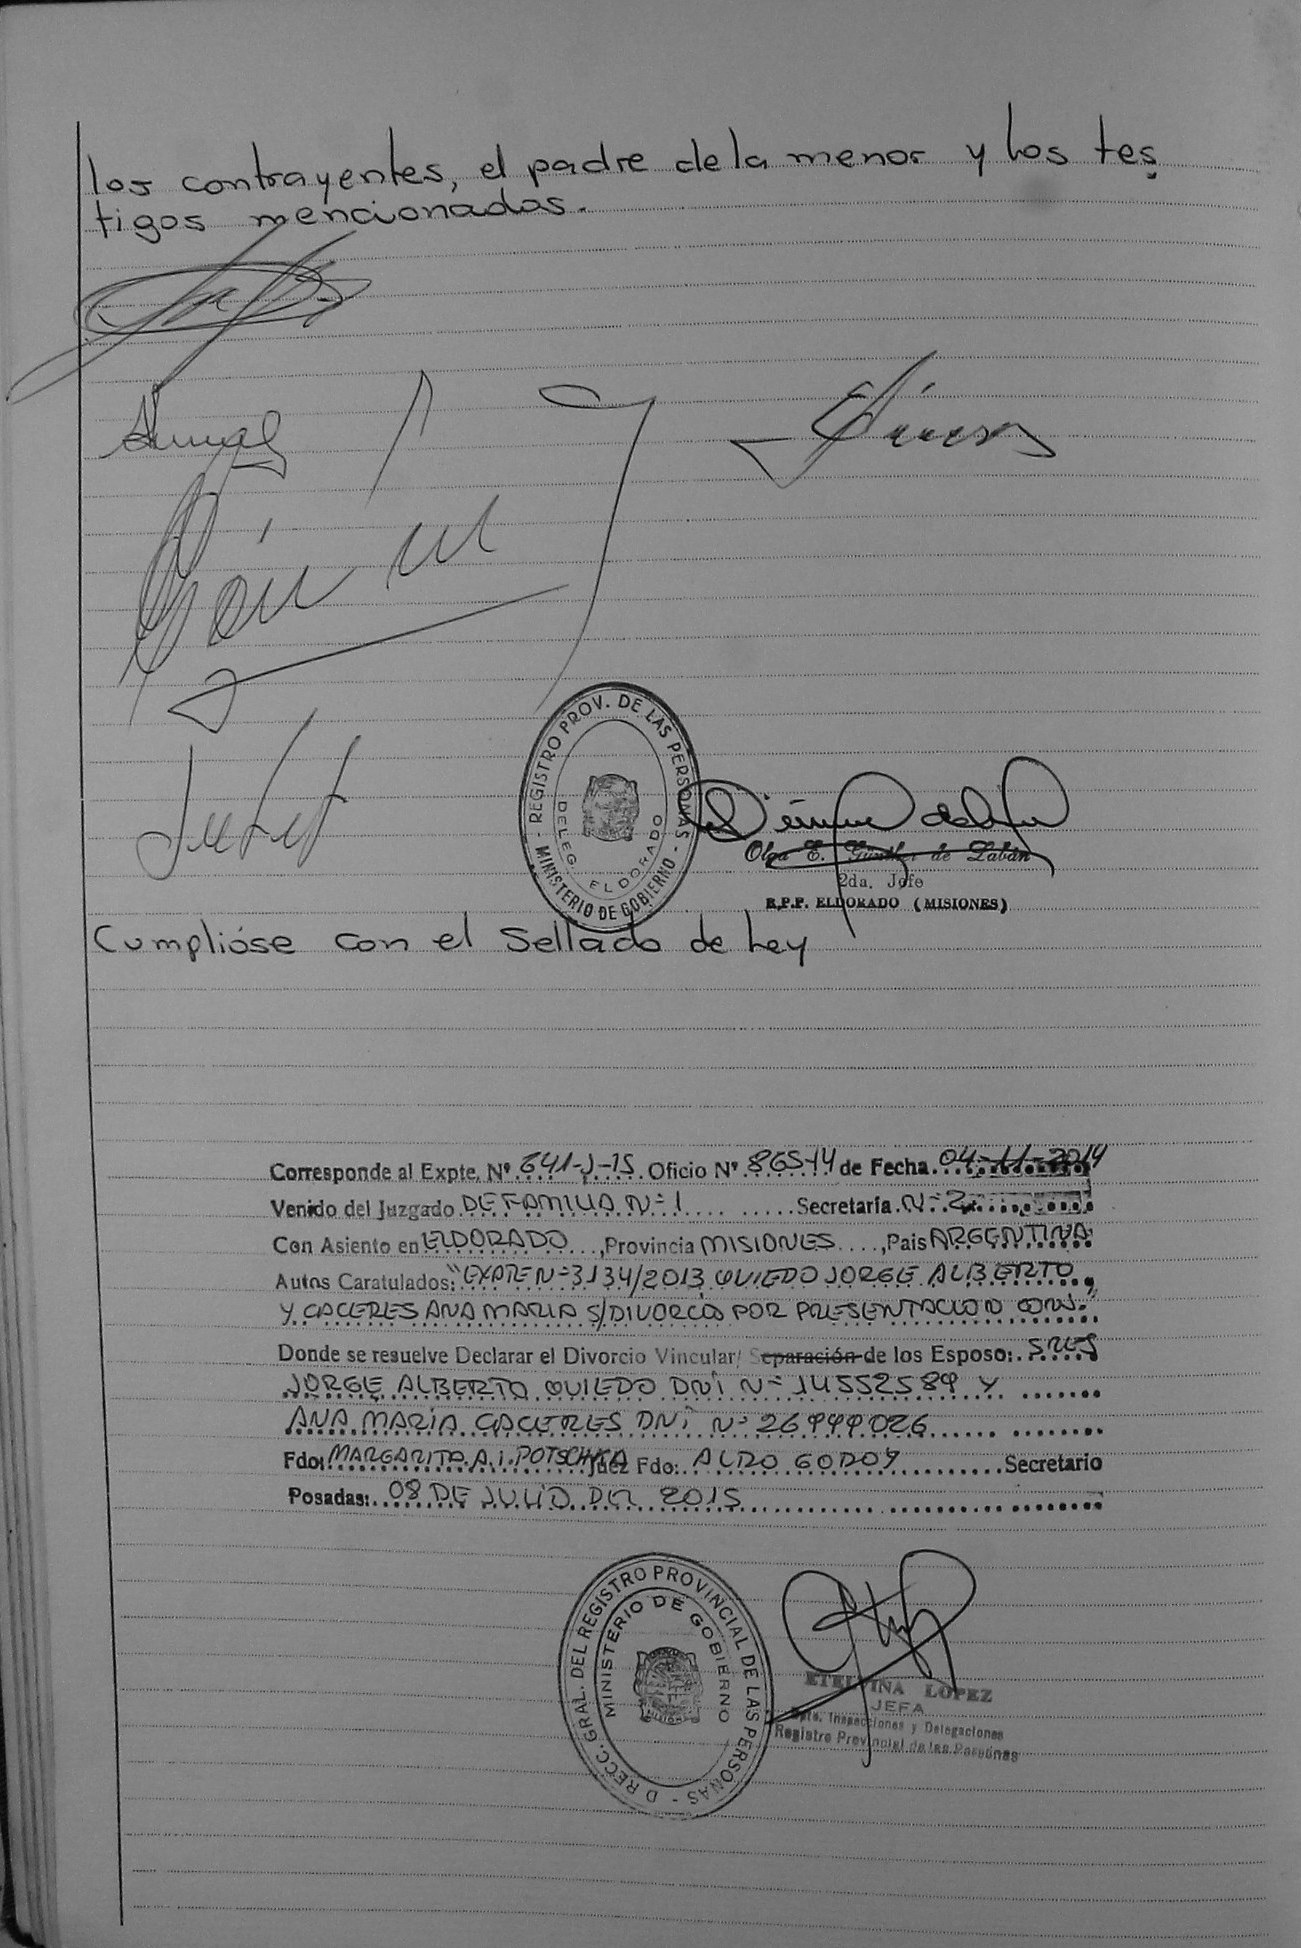 los contrayentes, el padre de la menor y los tes
tigos mencionados.
REGISTRO PROV. DE LAS PERSONAS
DELEG. ELDORADO
MINISTERIO DE GOBIERNO
Olga E. Günther de Labán
2da. Jefe
R.P.P. ELDORADO (MISIONES)
Cumplióse con el Sellado de Ley
Corresponde al Expte. Nº 641-J-15 Oficio Nº 865-14 de Fecha 04-11-2014
Venido del Juzgado DE FAMILIA Nº 1 Secretaría Nº 2
Con Asiento en ELDORADO, Provincia MISIONES, País ARGENTINA
Autos Caratulados: "EXPTE Nº 3134/2013 OVIEDO JORGE ALBERTO
Y CACERES ANA MARIA S/DIVORCIO POR PRESENTACION CONJ."
Donde se resuelve Declarar el Divorcio Vincular/ Separación de los Esposo: SRES
JORGE ALBERTO OVIEDO DNI Nº 14552589 Y
ANA MARIA CACERES DNI Nº
Fdo: MARGARITA A. I. POTSCHKA Juez Fdo: ALDO GODOY Secretario
Posadas: 08 DE JULIO DEL 2015
DIRECC. GRAL. DEL REGISTRO PROVINCIAL DE LAS PERSONAS
MINISTERIO DE GOBIERNO
ETELVINA LOPEZ
JEFA
Dpto. Inspecciones y Delegaciones
Registro Provincial de las Personas